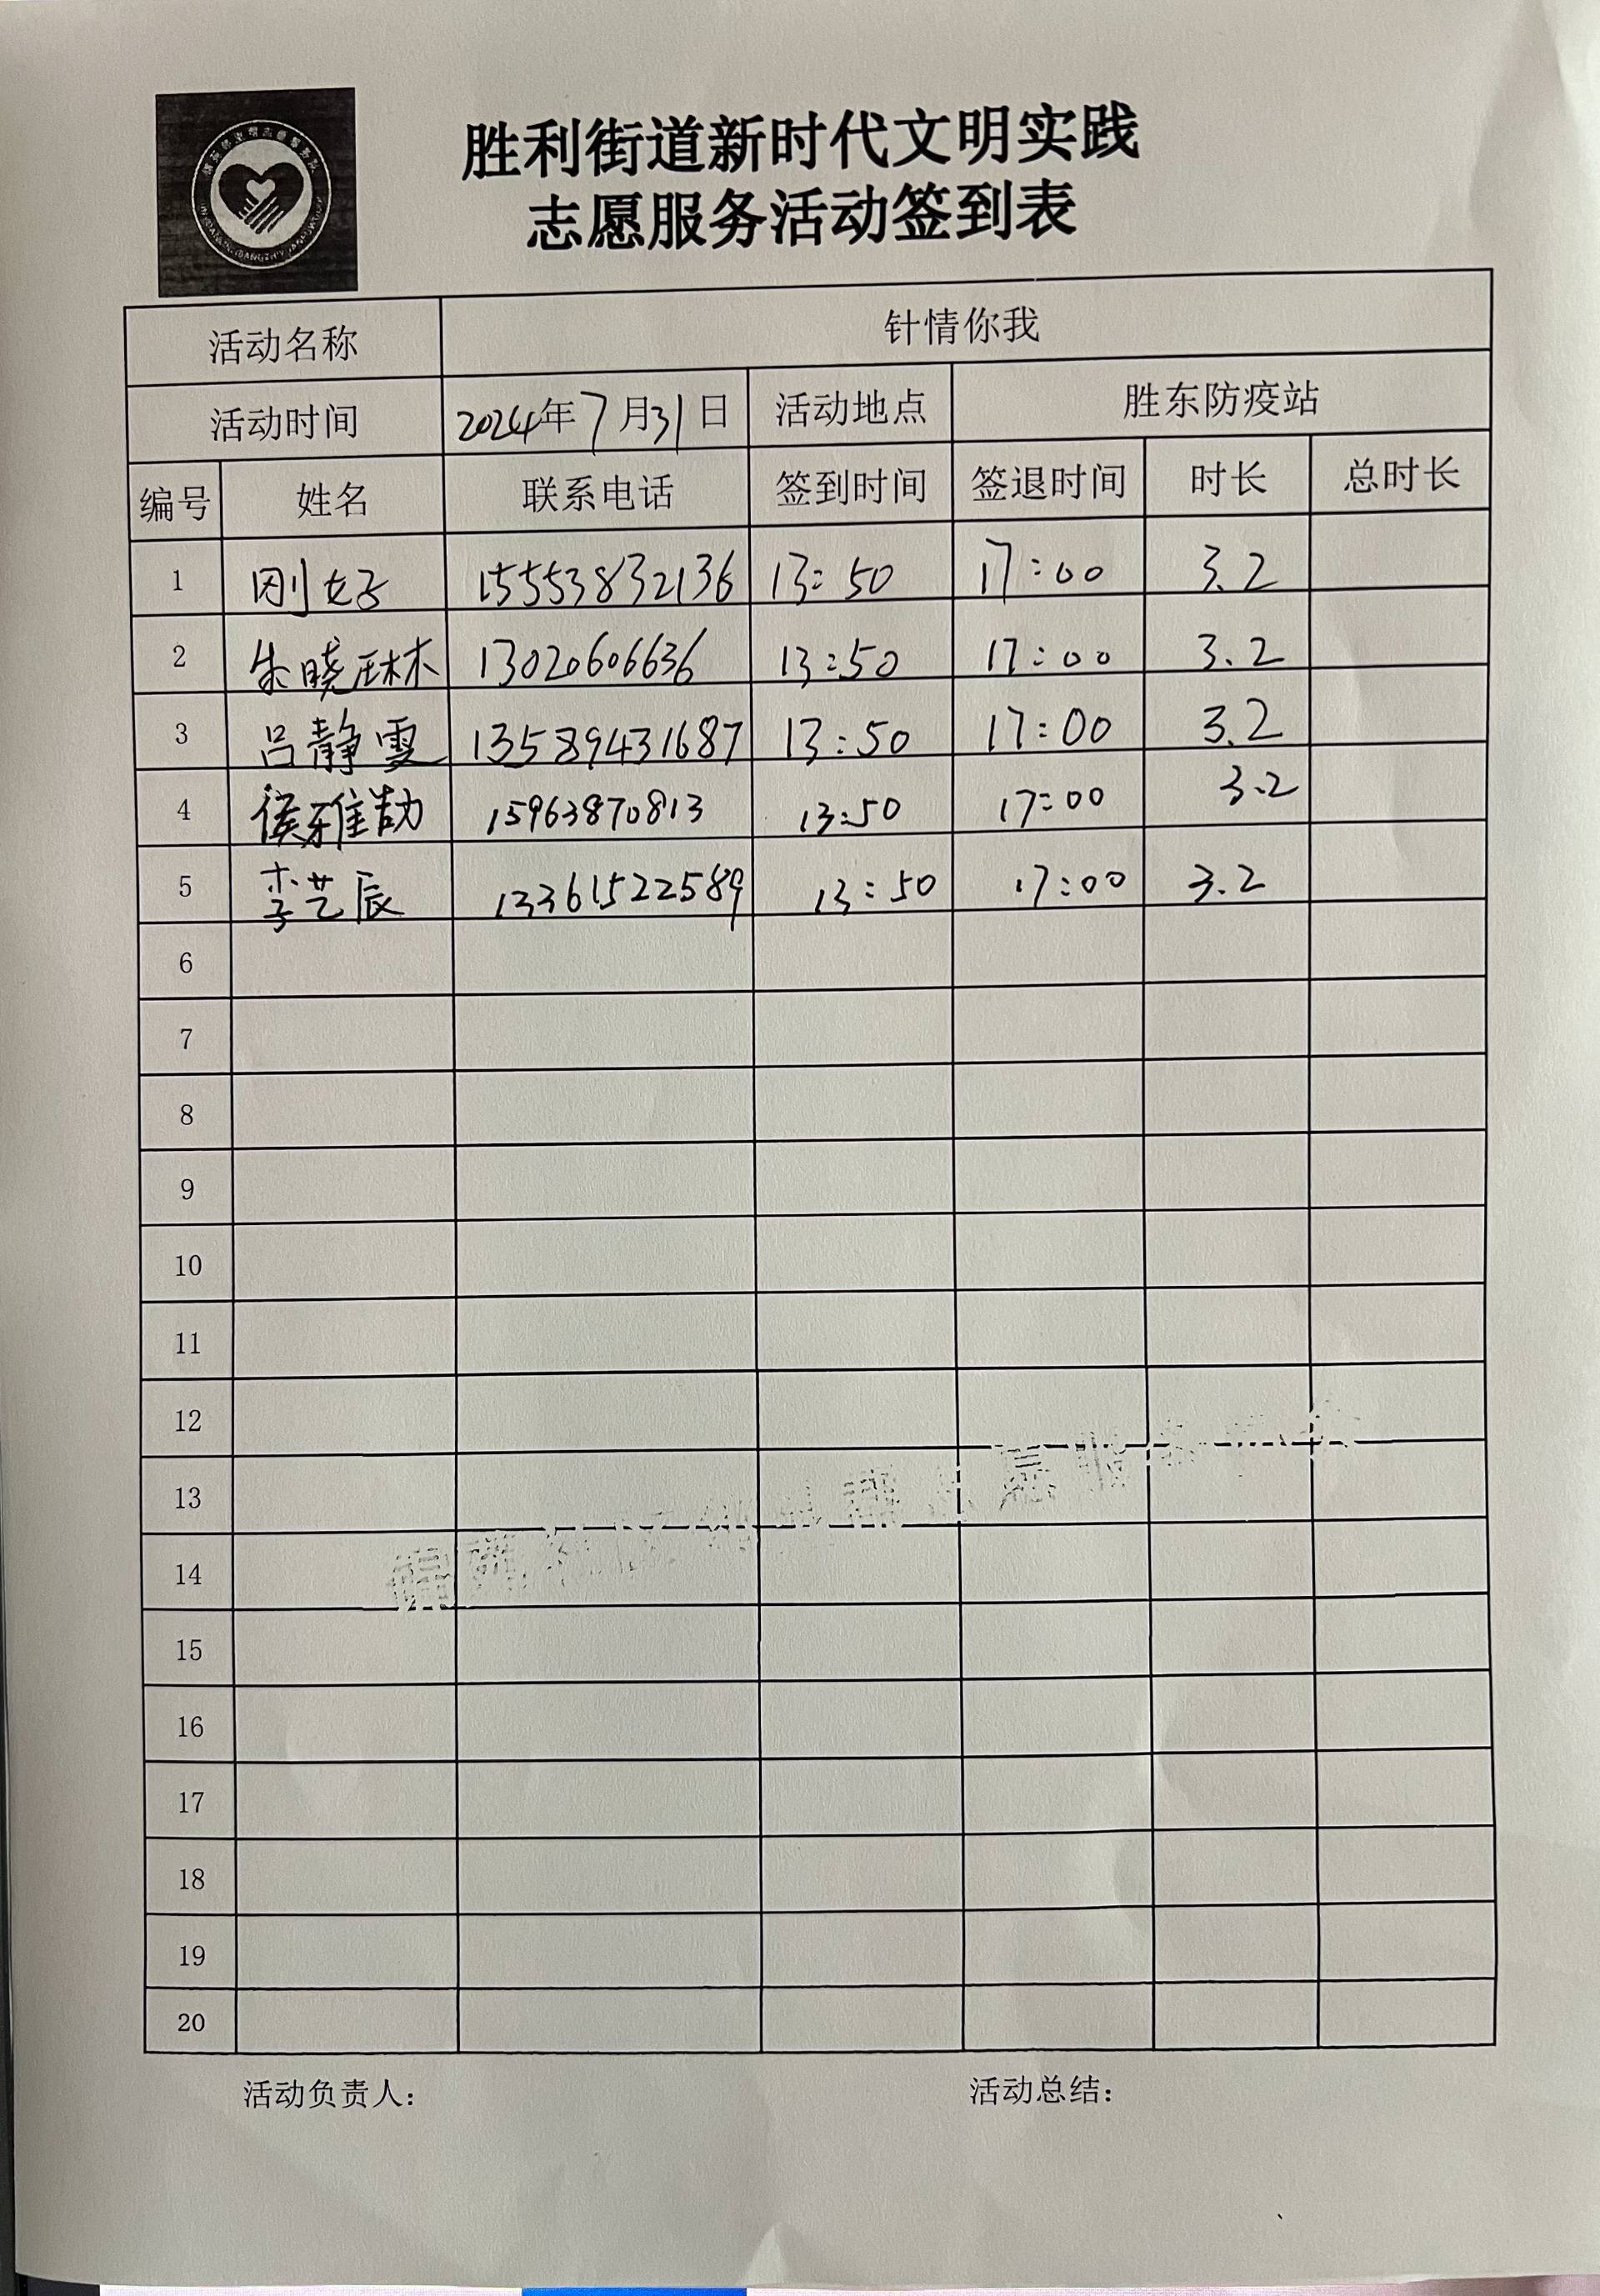 胜利街道新时代文明实践
志愿服务活动签到表
活动名称 针情你我
活动时间 2024年7月31日 活动地点 胜东防疫站
编号 姓名 联系电话 签到时间 签退时间 时长 总时长
1 刚好 15553832136 13:50 17:00 3.2
2 朱晓琳 13020606636 13:50 17:00 3.2
3 吕静雯 13589431687 13:50 17:00 3.2
4 侯雅喆 15963870813 13:50 17:00 3.2
5 李艺辰 13361522589 13:50 17:00 3.2
6
7
8
9
10
11
12
13
14
15
16
17
18
19
20
活动负责人: 活动总结: